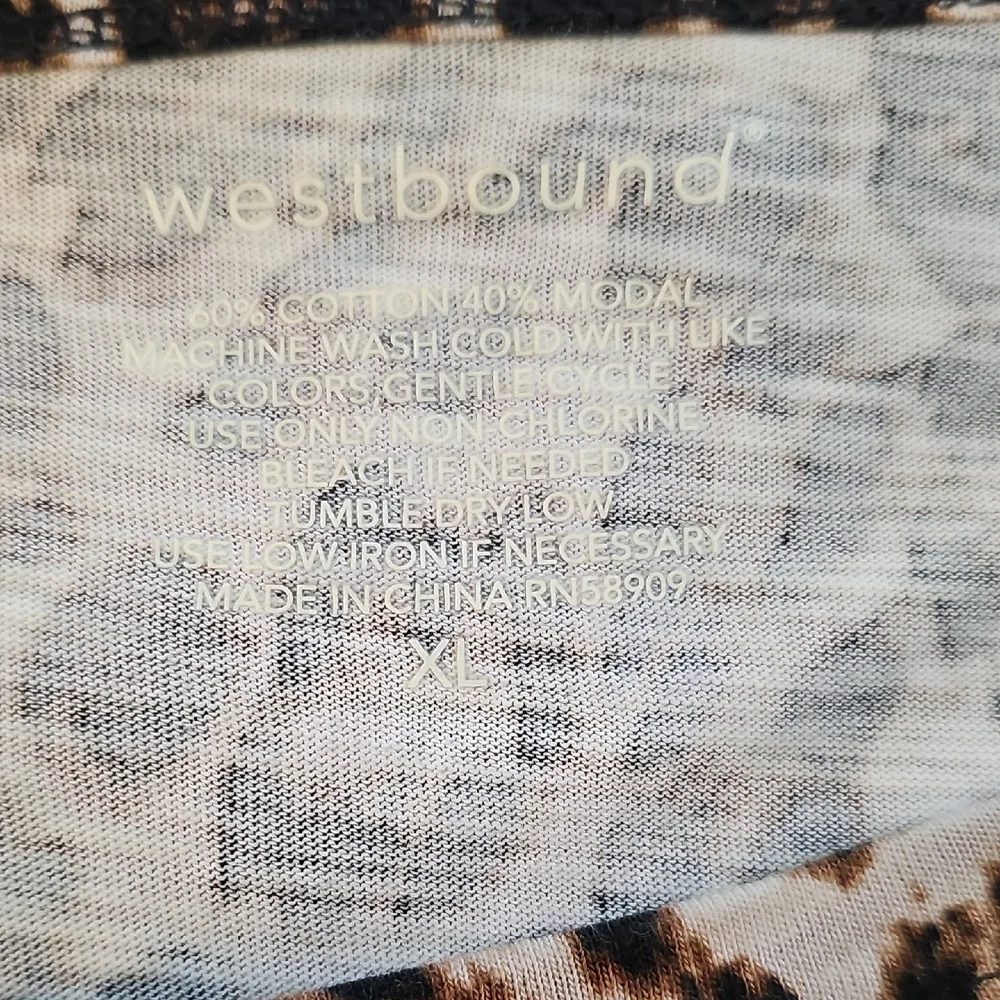 westbound®
60% COTTON 40% MODAL
MACHINE WASH COLD WITH LIKE
COLORS GENTLE CYCLE
USE ONLY NON-CHLORINE
BLEACH IF NEEDED
TUMBLE DRY LOW
USE LOW IRON IF NECESSARY
MADE IN CHINA RN58909
XL